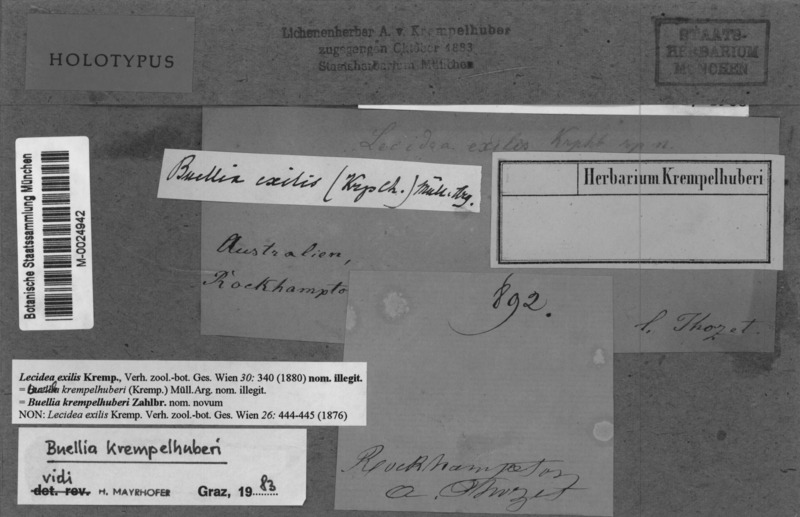 HOLOTYPUS
Lichenenherbar A. v. Krempelhuber
zugegangen Oktober 1883
Staatsherbarium München
STAATS-
HERBARIUM
MÜNCHEN
Botanische Staatssammlung München
M-0024942
Lecidea exilis Krphb sp. n.
Buellia exilis (Krpelh.) Müll. Arg.
Herbarium Krempelhuberi
Australien,
Rockhampto
l. Thozet.
892.
Rockhampton
a. Thozet
Lecidea exilis Kremp., Verh. zool.-bot. Ges. Wien 30: 340 (1880) nom. illegit.
= krempelhuberi (Kremp.) Müll.Arg. nom. illegit.
= Buellia krempelhuberi Zahlbr. nom. novum
NON: Lecidea exilis Kremp. Verh. zool.-bot. Ges. Wien 26: 444-445 (1876)
Buellia Krempelhuberi
vidi
det. rev. H. MAYRHOFER Graz, 19 83